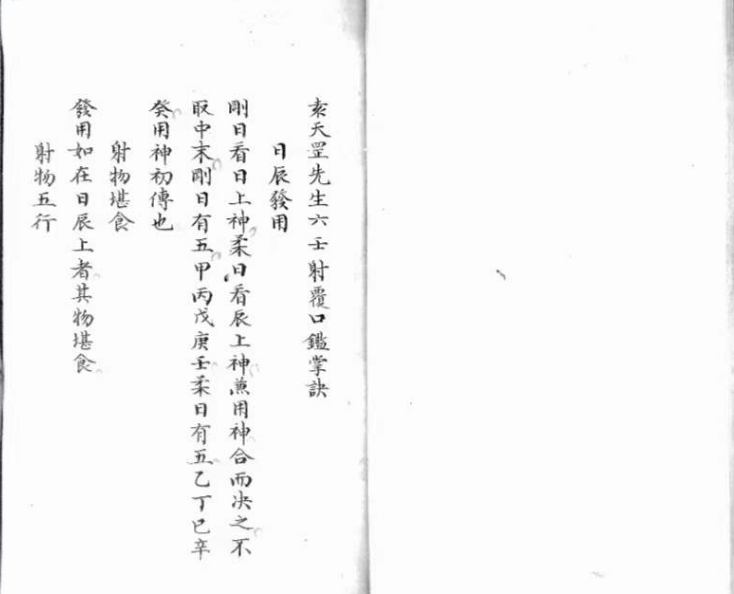 袁天罡先生六壬射覆口鑑掌訣
日辰發用
剛日看日上神柔日看辰上神兼用神合而决之不
取中末剛日有五甲丙戊庚壬柔日有五乙丁已辛
癸用神初傳也
射物堪食
發用如在日辰上者其物堪食
射物五行